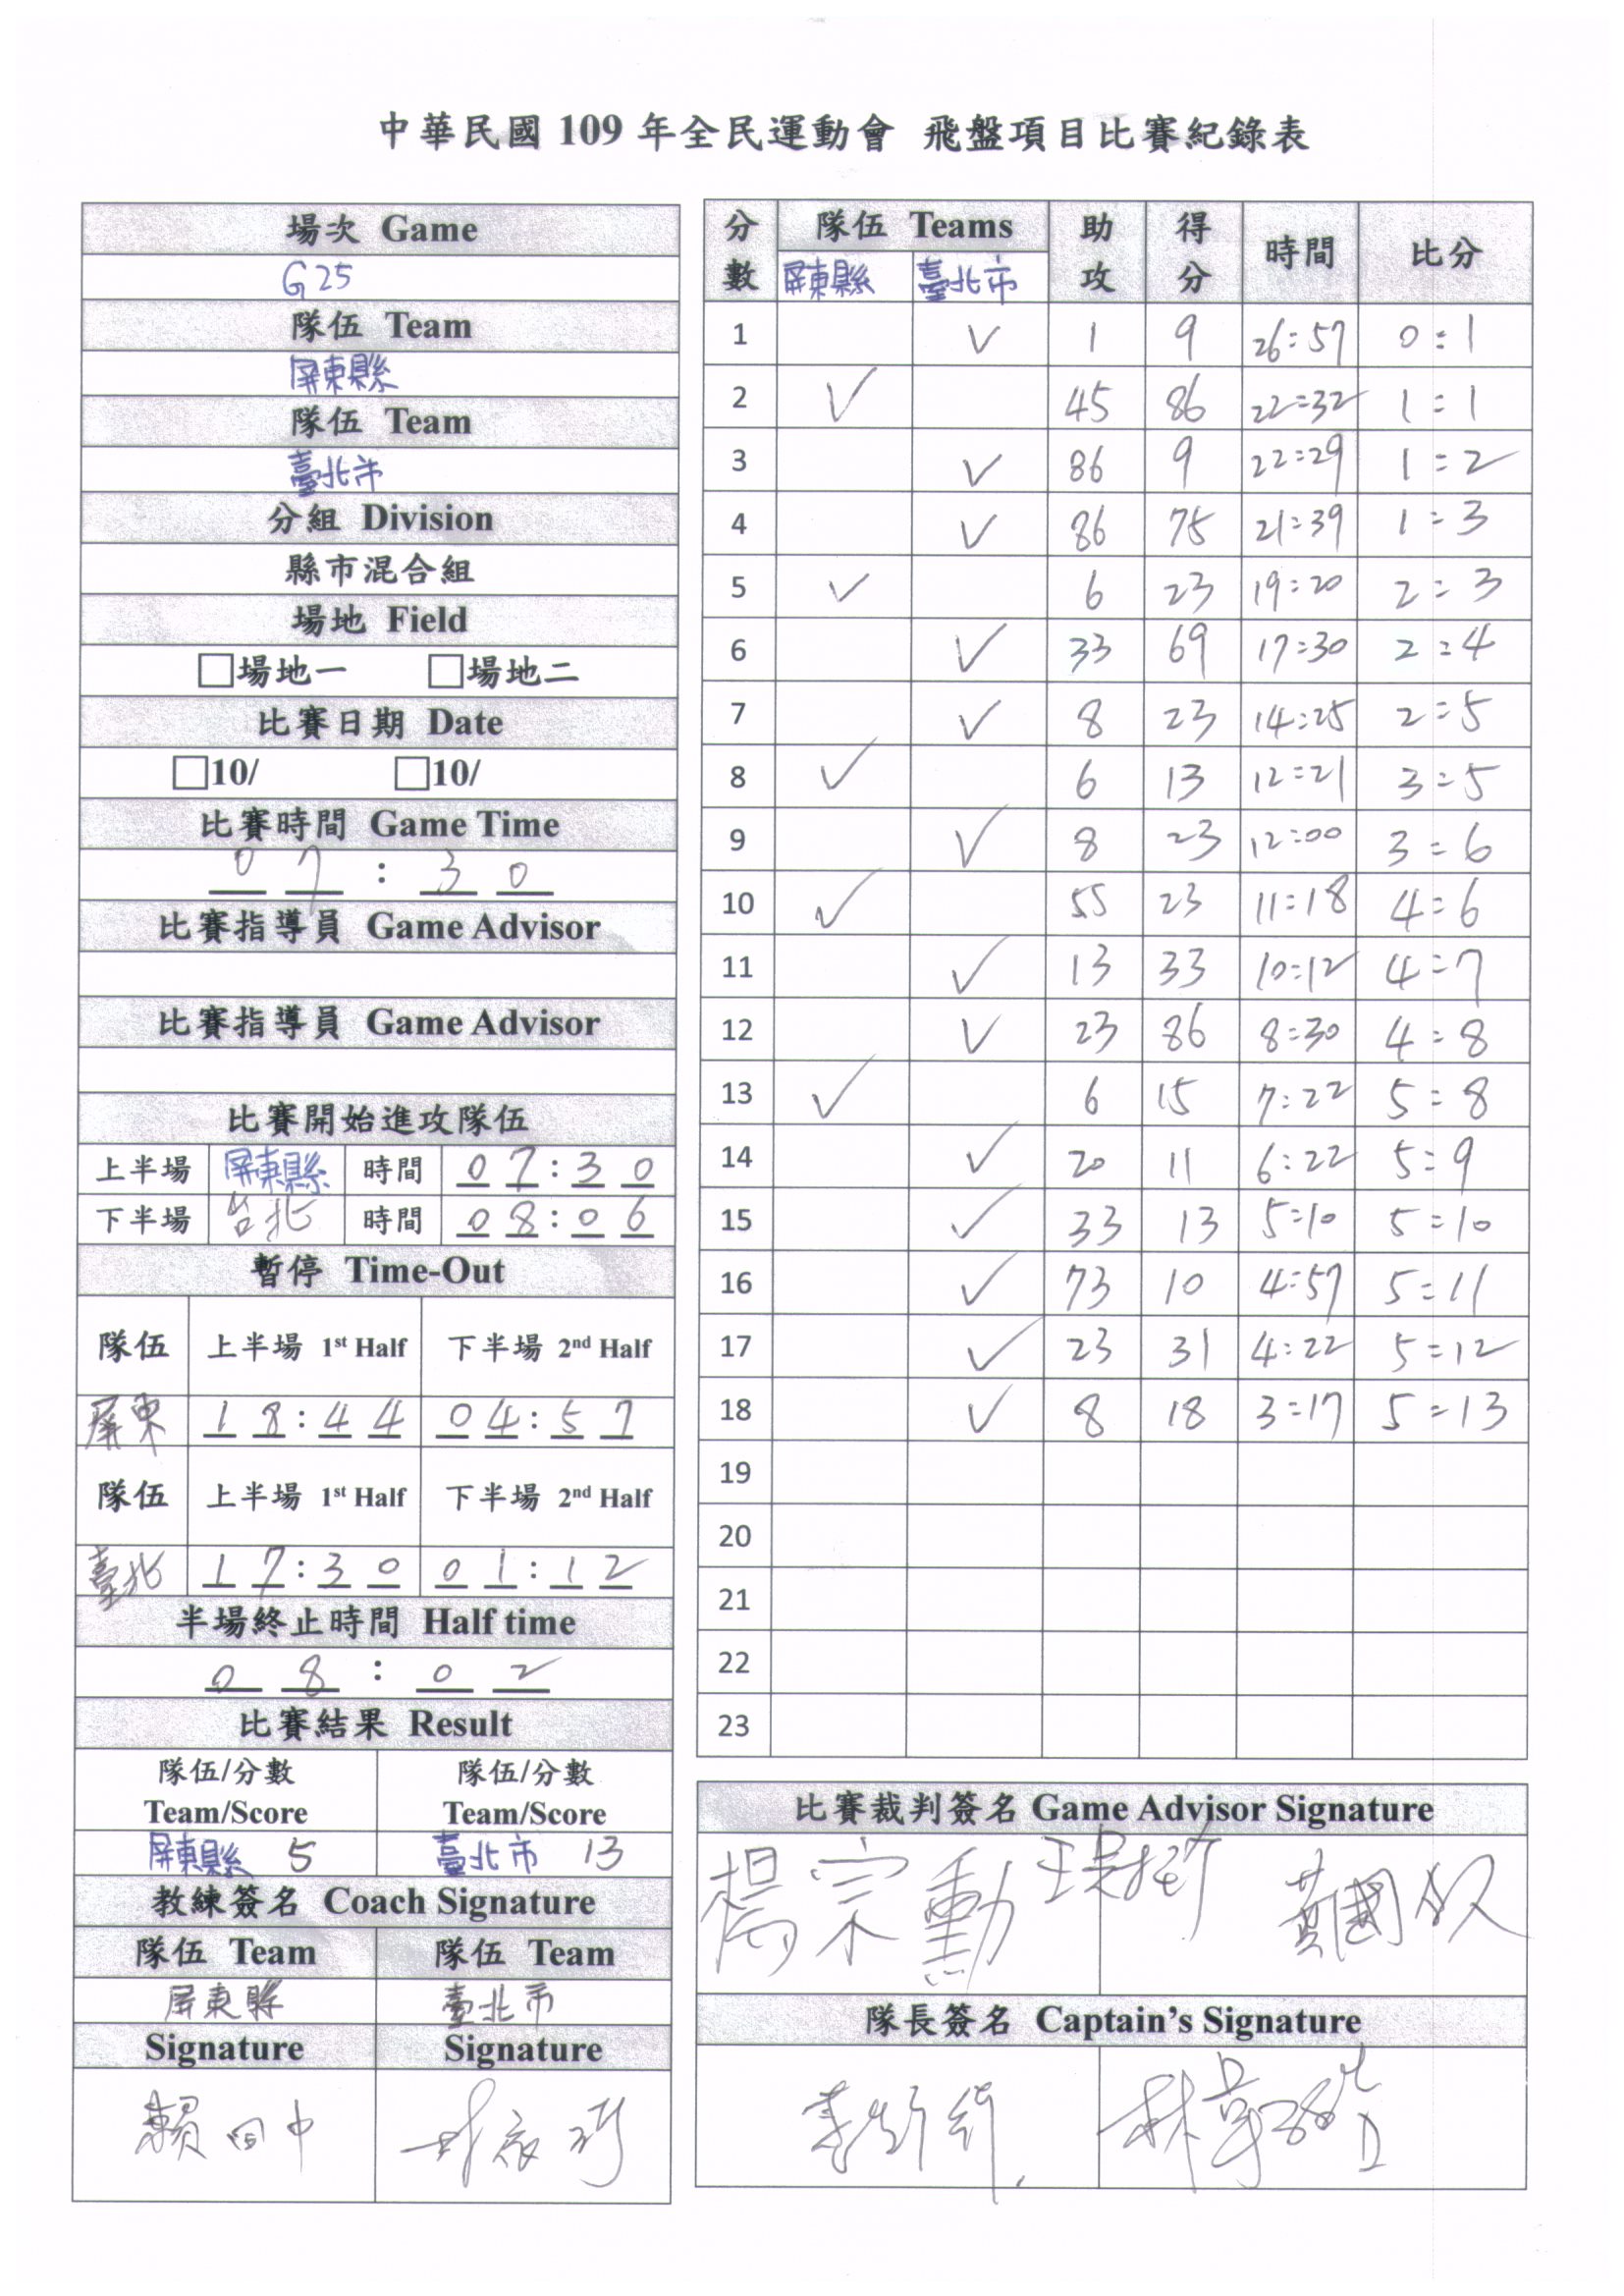 中華民國 109 年全民運動會 飛盤項目比賽紀錄表
場次 Game
G25
隊伍 Team
屏東縣
隊伍 Team
臺北市
分組 Division
縣市混合組
場地 Field
□場地一 □場地二
比賽日期 Date
□10/ □10/
比賽時間 Game Time
07:30
比賽指導員 Game Advisor
比賽指導員 Game Advisor
比賽開始進攻隊伍
上半場 屏東縣 時間 07:30
下半場 台北 時間 08:06
暫停 Time-Out
隊伍 上半場 1st Half 下半場 2nd Half
屏東 18:44 04:57
隊伍 上半場 1st Half 下半場 2nd Half
臺北 17:30 01:12
半場終止時間 Half time
08:02
比賽結果 Result
隊伍/分數 隊伍/分數
Team/Score Team/Score
屏東縣 5 臺北市 13
教練簽名 Coach Signature
隊伍 Team 隊伍 Team
屏東縣 臺北市
Signature Signature
分數 隊伍 Teams 助攻 得分 時間 比分
屏東縣 臺北市
1 ✓ 1 9 26:57 0:1
2 ✓ 45 86 22:32 1:1
3 ✓ 86 9 22:29 1:2
4 ✓ 86 75 21:39 1:3
5 ✓ 6 23 19:20 2:3
6 ✓ 33 69 17:30 2:4
7 ✓ 8 23 14:25 2:5
8 ✓ 6 13 12:21 3:5
9 ✓ 8 23 12:00 3:6
10 ✓ 55 23 11:18 4:6
11 ✓ 13 33 10:12 4:7
12 ✓ 23 86 8:30 4:8
13 ✓ 6 15 7:22 5:8
14 ✓ 20 11 6:22 5:9
15 ✓ 33 13 5:10 5:10
16 ✓ 73 10 4:57 5:11
17 ✓ 23 31 4:22 5:12
18 ✓ 8 18 3:17 5:13
19
20
21
22
23
比賽裁判簽名 Game Advisor Signature
楊宗勳
隊長簽名 Captain's Signature